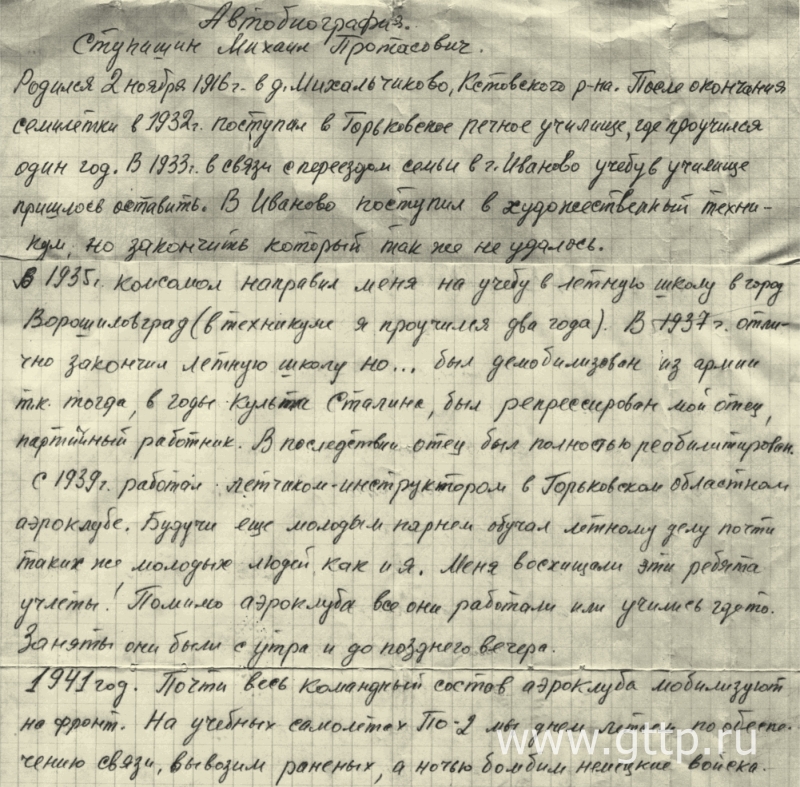 Автобиография.
Ступишин Михаил Протасович.
Родился 2 ноября 1916г. в д. Михальчиково, Кстовского р-на. После окончания
семилетки в 1932г. поступил в Горьковское речное училище, где проучился
один год. В 1933г. в связи с переездом семьи в г. Иваново учебу в училище
пришлось оставить. В Иваново поступил в художественный техни-
кум, но закончить который так же не удалось.
В 1935г. комсомол направил меня на учебу в летную школу в город
Ворошиловград (в техникуме я проучился два года). В 1937г. отли-
чно закончил летную школу но... был демобилизован из армии
т.к. тогда, в годы культа Сталина, был репрессирован мой отец,
партийный работник. В последствии отец был полностью реабилитирован.
С 1939г. работал летчиком-инструктором в Горьковском областном
аэроклубе. Будучи еще молодым парнем обучал летному делу почти
таких же молодых людей, как и я. Меня восхищали эти ребята
учлеты! Помимо аэроклуба все они работали или учились где то.
Заняты они были с утра и до позднего вечера.
1941 год. Почти весь командный состав аэроклуба мобилизуют
на фронт. На учебных самолетах По-2 мы днем летаем по обеспе-
чению связи, вывозим раненых, а ночью бомбим немецкие войска.
www.gttp.ru